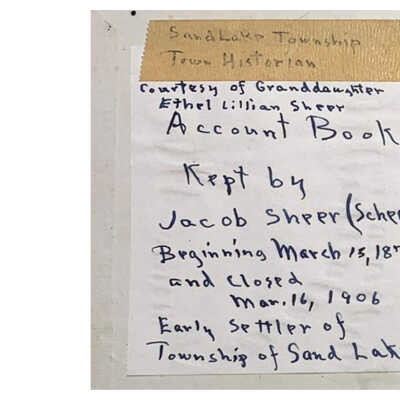 Sand Lake Township
Town Historian
Courtesy of Granddaughter
Ethel Lillian Sheer
Account Book
Kept by
Jacob Sheer (Schee
Beginning March 15, 18
and closed
Mar. 16, 1906
Early Settler of
Township of Sand Lak